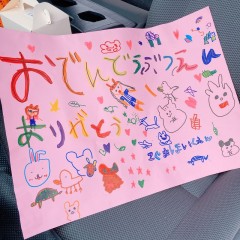 おでんどうぶつえん
ありがとう